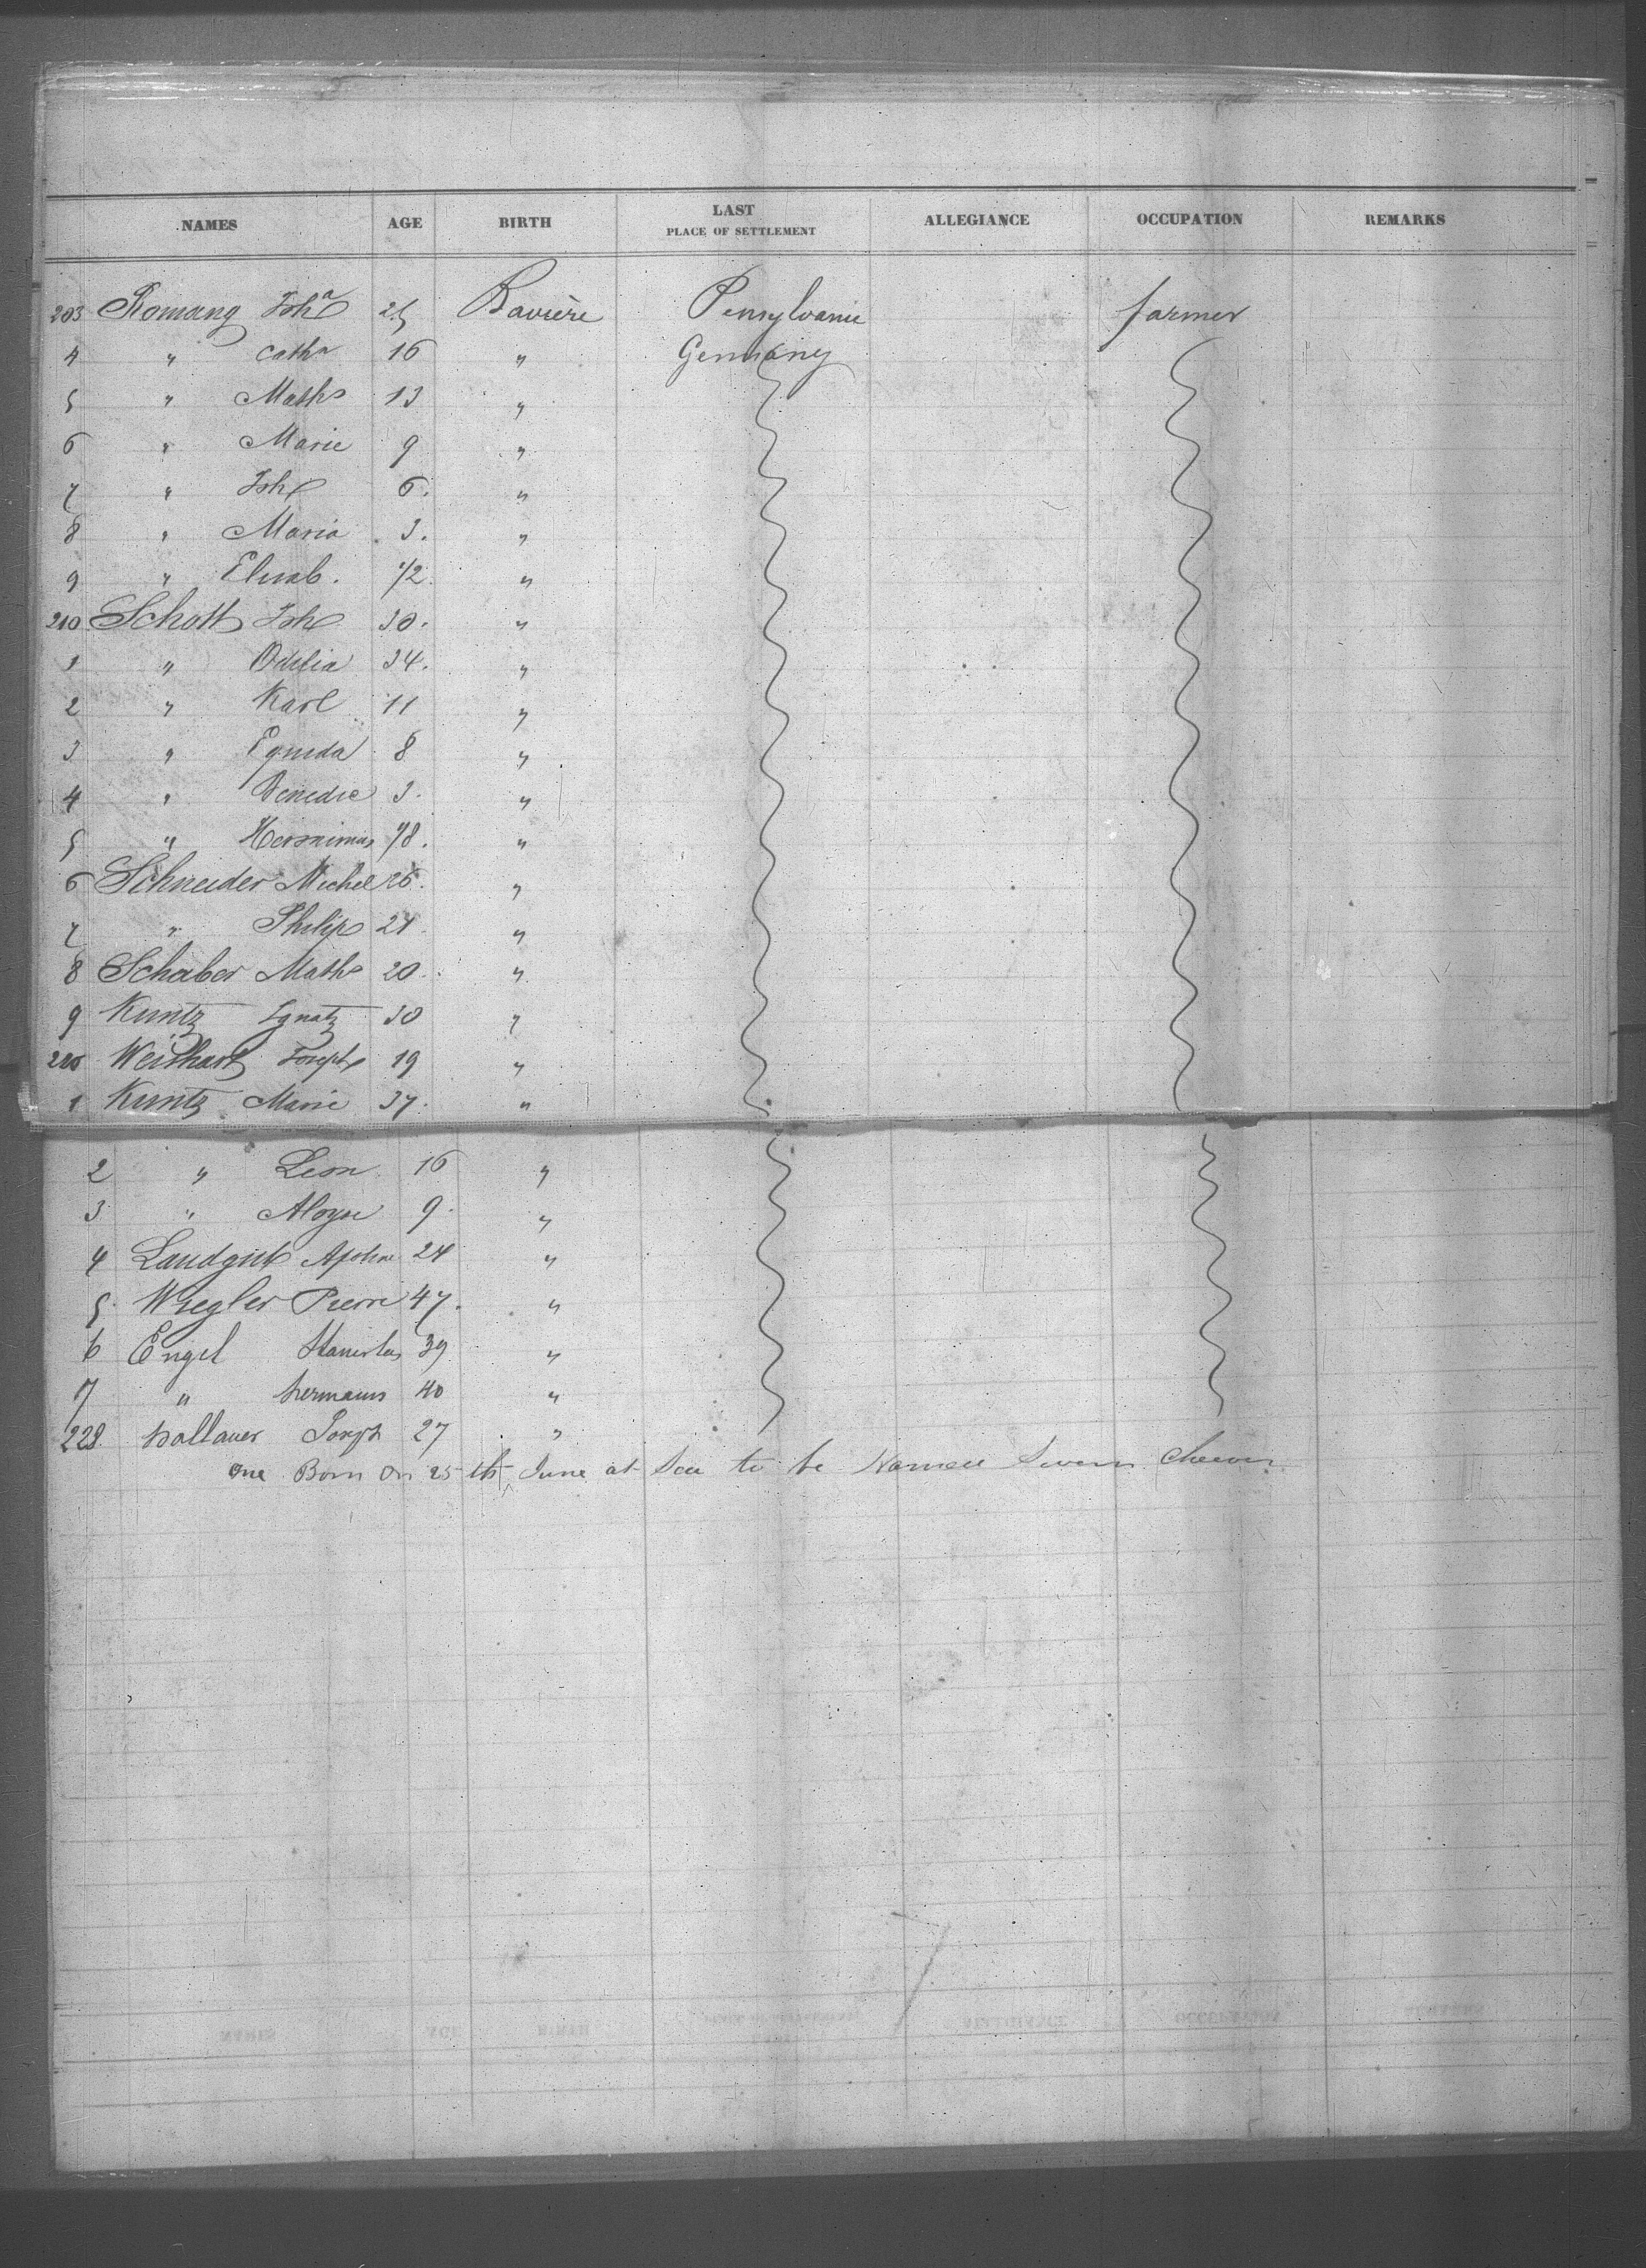 NAMES AGE BIRTH LAST PLACE OF SETTLEMENT ALLEGIANCE OCCUPATION REMARKS
203 Romang 25 Bavière Pensylvanie farmer
4 " Catha 16 " Germany
5 " Maths 13 "
6 " Marie 9 "
7 " Joh 6. "
8 " Maria 3. "
9 " Elisab. 1/2 "
210 Schott Joh 30. "
1 " Odelia 34. "
2 " Karl 11 "
3 " 8 "
4 " Benedic 3. "
5 " Heronimus "
6 Schneider Michel 26. "
7 " Philip 24 "
8 Schaber Maths 20. "
9 Kuntz Ignatz 30 "
220 Weishart Joseph 19 "
1 Kuntz Marie 37. "
2 " Leon 16 "
3 " Aloyse 9. "
4 Landgut 24 "
5 Wiegler Pierre 47. "
6 Engel Stanislas 39 "
7 " hermanns 40 "
228. hallauer Joseph 27 "
One Born On 25th June at Sea to be Named